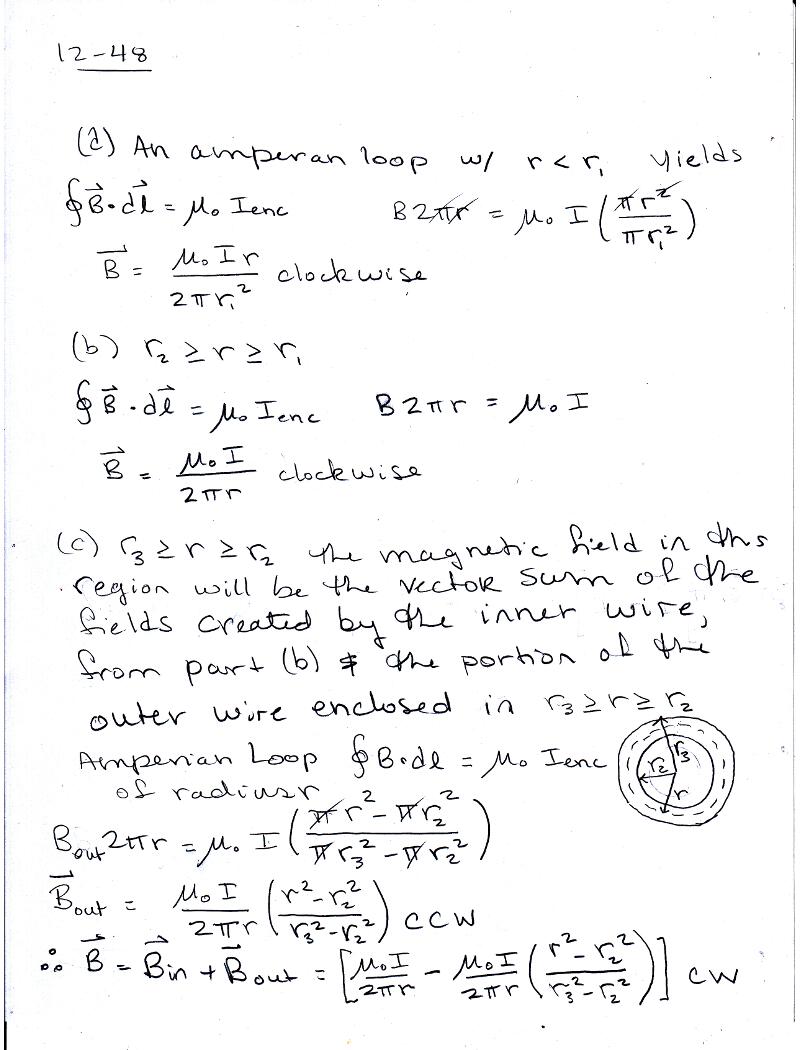 12-48
(a) An amperan loop w/ r < r₁ yields
∮B⃗·dl⃗ = μ₀ Ienc    B2πr = μ₀ I (πr²/πr₁²)
B⃗ = μ₀Ir/2πr₁² clockwise
(b) r₂ ≥ r ≥ r₁
∮B⃗·dl⃗ = μ₀ Ienc    B2πr = μ₀I
B⃗ = μ₀I/2πr clockwise
(c) r₃ ≥ r ≥ r₂ the magnetic field in ths
region will be the vector sum of the
fields created by the inner wire,
from part (b) & the portion of the
outer wire enclosed in r₃ ≥ r ≥ r₂
Amperian Loop ∮B·dl = μ₀ Ienc
of radius r
r₂ r₃
r
Bout 2πr = μ₀ I (πr² - πr₂² / πr₃² - πr₂²)
B⃗out = μ₀I/2πr (r² - r₂² / r₃² - r₂²) CCW
∴ B⃗ = B⃗in + B⃗out = [μ₀I/2πr - μ₀I/2πr (r² - r₂² / r₃² - r₂²)] CW